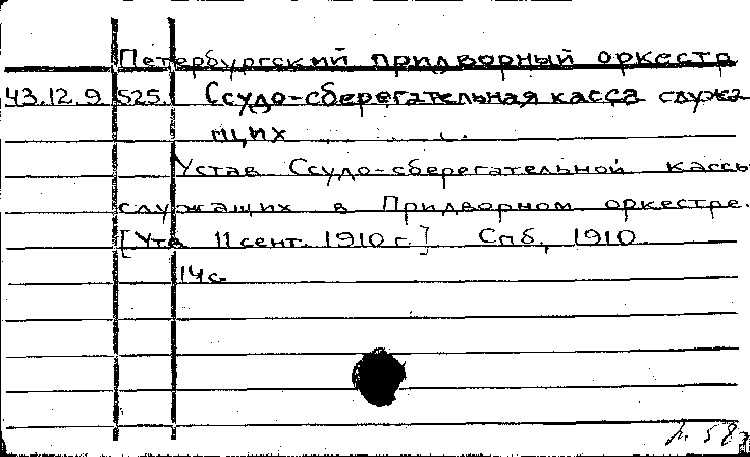 Петербургский придворный оркестр
43.12.9 525. Ссудо-сберегательная касса служа-
щих
Устав Ссудо-сберегательной кассы
служащих в Придворном оркестре.
[Утв. 11 сент. 1910 г.] Спб, 1910.
14 с.